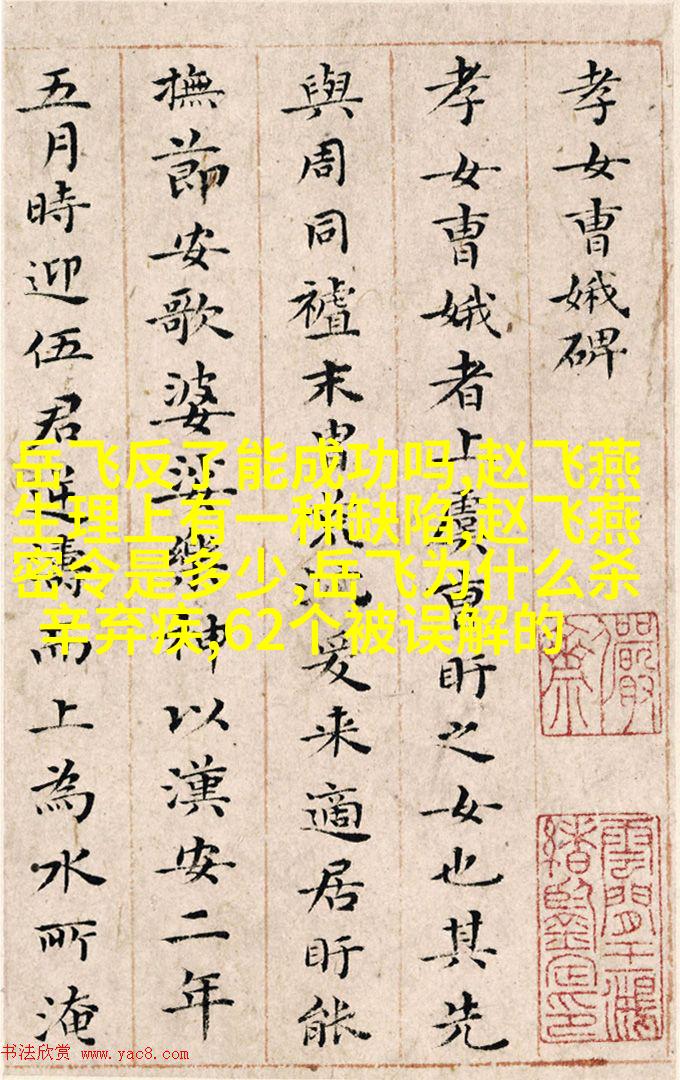 孝女曹娥碑
孝女曹娥者上虞曹盱之女也其先
與周同末胄荒沉爰来適居盱能
撫節安歌婆娑樂神以漢安二年
五月時迎伍君逆濤而上為水所淹
岳飞反了能成功吗,赵飞燕
生理上有一种缺陷,赵飞燕
密令是多少,岳飞为什么杀
辛弃疾,62个被误解的
雲間王鴻
緒鑒定印
书法欣赏 www.yac8.com